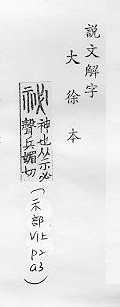 說文解字
大徐本
祕神也从示必
聲兵媚切
(示部V1上P2a3)